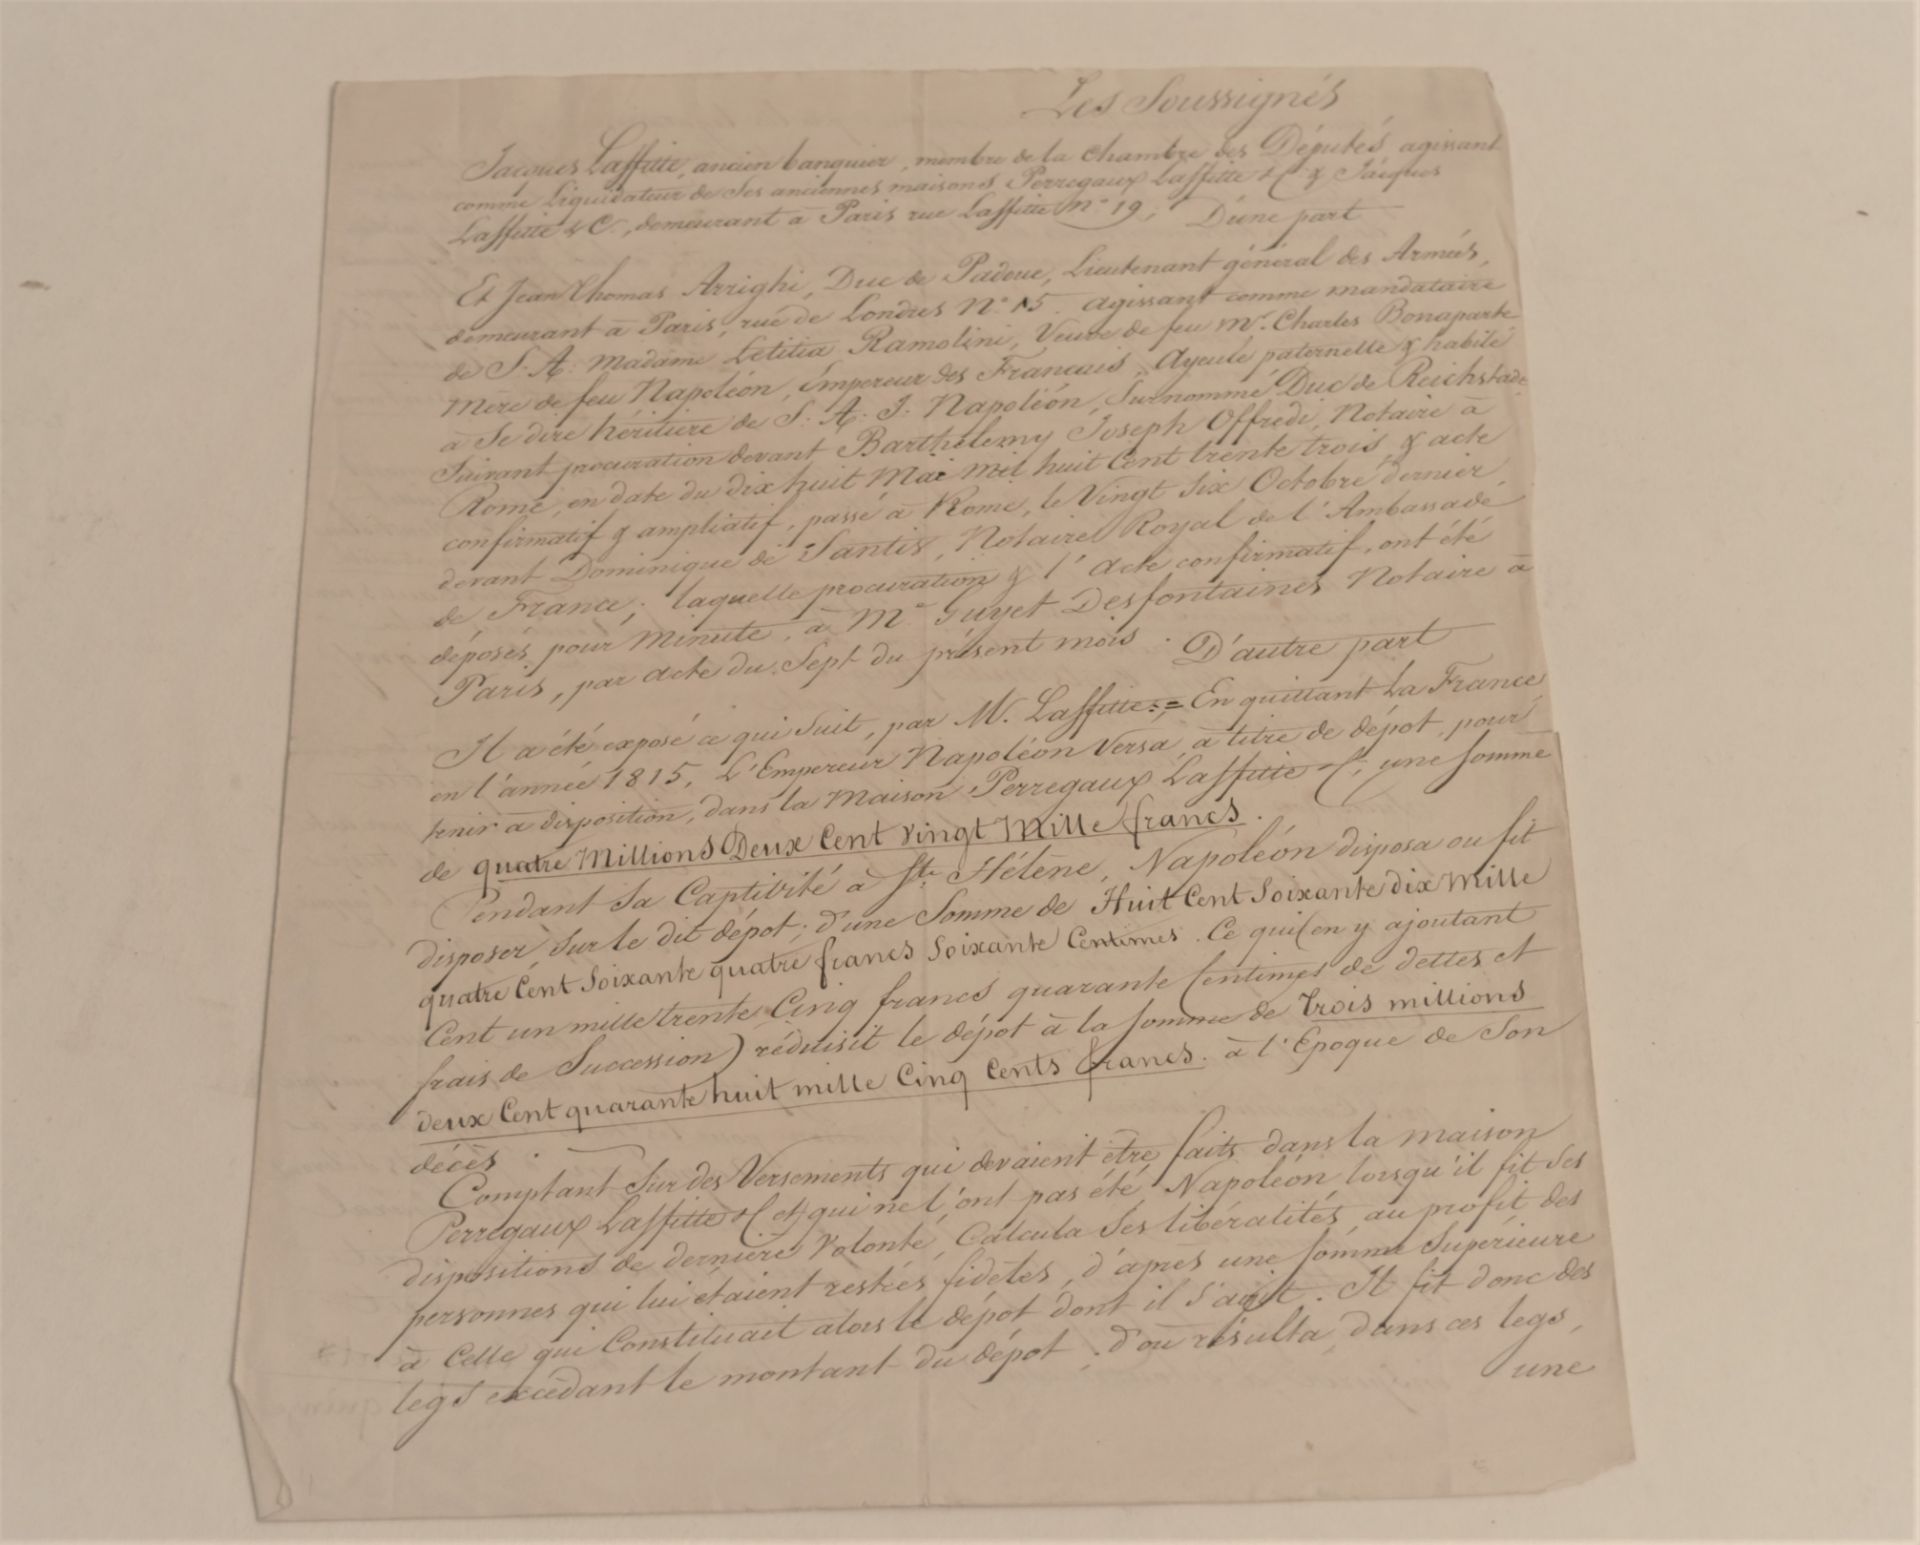 Les Soussignés
Jacques Laffitte, ancien banquier, membre de la Chambre des Députés, agissant
comme Liquidateur de Ses anciennes maisons Perregaux Laffitte & C. & Jacques
Laffitte & C., demeurant à Paris rue Laffitte N° 19; D'une part
Et Jean Thomas Arrighi, Duc de Padoue, Lieutenant général des Armées,
demeurant à Paris, rue de Londres N° 15. agissant comme mandataire
de S. A. Madame Letitia Ramolini, Veuve de feu Mr. Charles Bonaparte
Mère de feu Napoléon, Empereur des Français, Ayeule paternelle & habile
à Se dire héritière de S. A. I. Napoléon, Surnommé Duc de Reichstadt
Suivant procuration devant Barthélemy Joseph Offredi, Notaire à
Rome, en date du dix huit Mai mil huit Cent trente trois, & acte
confirmatif & ampliatif, passé à Rome, le Vingt Six Octobre dernier,
devant Dominique de Santis, Notaire Royal de l'Ambassade
de France; laquelle procuration & l'acte confirmatif, ont été
déposés pour Minute, à Me Guyet Desfontaines Notaire à
Paris, par acte du Sept du présent mois. D'autre part
Il a été exposé ce qui Suit, par M. Laffitte := En quittant La France,
en l'année 1815, L'Empereur Napoléon Versa, à titre de dépot, pour
tenir à disposition, dans la Maison Perregaux Laffitte & C, une Somme
de quatre Millions Deux Cent Vingt Mille francs.
Pendant Sa Captivité à Ste Hélène, Napoléon disposa ou fit
disposer, Sur le dit dépot; d'une Somme de Huit Cent Soixante dix Mille
quatre Cent Soixante quatre francs Soixante Centimes. Ce qui (en y ajoutant
Cent un mille trente Cinq francs quarante Centimes de dettes et
frais de Succession) réduisit le dépot à la Somme de trois millions
deux Cent quarante huit mille Cinq Cents francs. à l'Epoque de Son
décès.
Comptant Sur des Versements qui devaient être faits dans la maison
Perregaux Laffitte & C et qui ne l'ont pas été, Napoléon lorsqu'il fit Ses
dispositions de dernière Volonté, Calcula Ses libéralités, au profit des
personnes qui lui étaient restées fidèles, d'après une Somme Supérieure
à Celle qui Constituait alors le dépot dont il S'agit. Il fit donc des
legs excédant le montant du dépot; d'où résulta, dans ces legs,
une